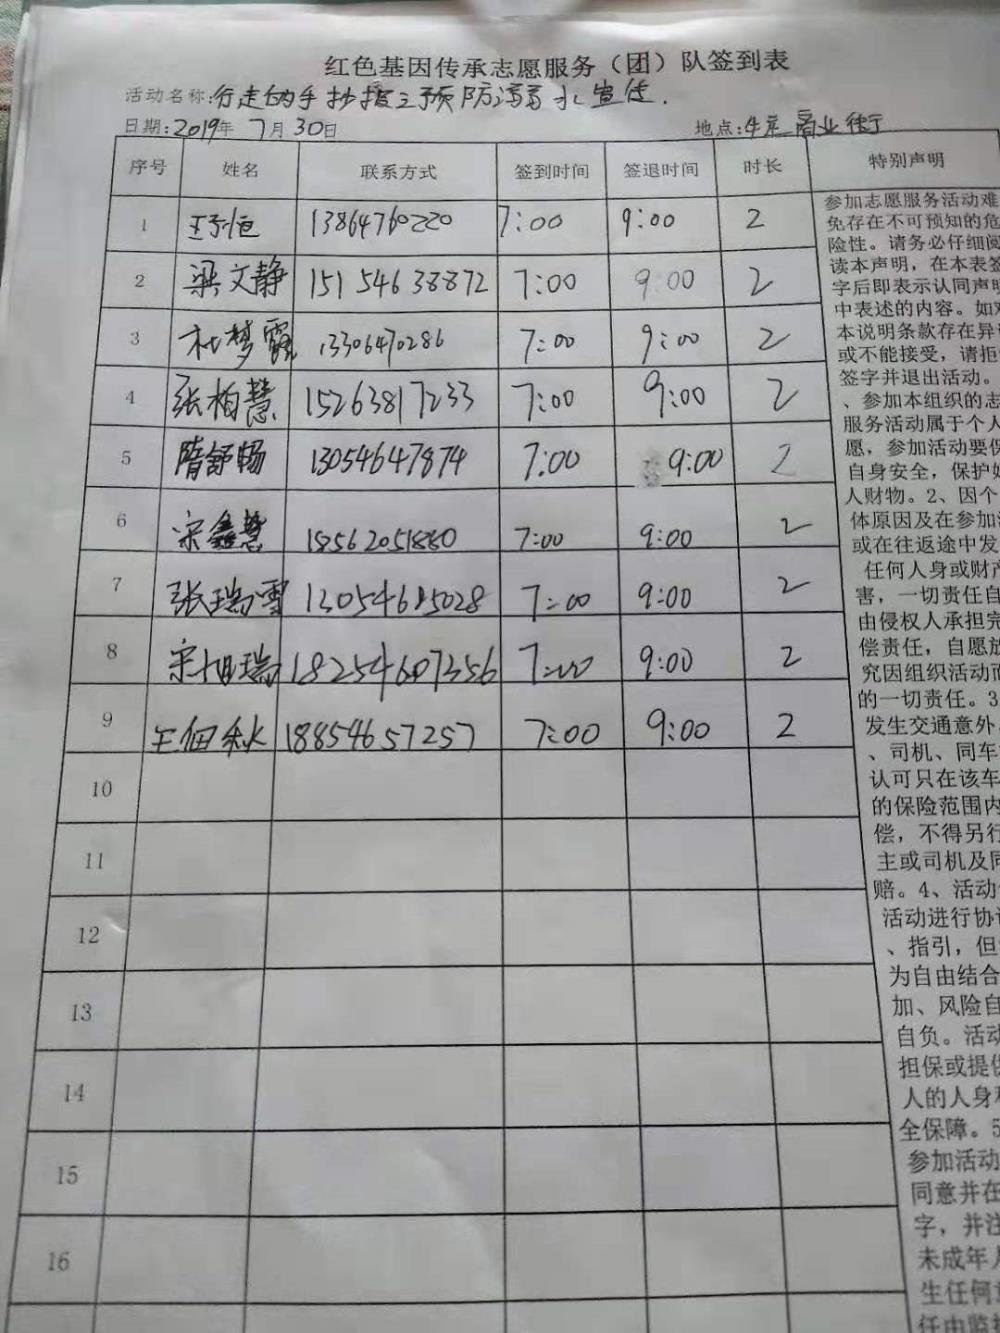 红色基因传承志愿服务（团）队签到表
活动名称:行走的手抄报之预防溺水宣传.
日期:2019年 7月30日 地点:牛庄商业街
序号 姓名 联系方式 签到时间 签退时间 时长 特别声明
1 王予恒 13864760220 7:00 9:00 2
2 梁文静 15154638872 7:00 9:00 2
3 杜梦霞 13306470286 7:00 9:00 2
4 张柏慧 15263817233 7:00 9:00 2
5 隋舒畅 13054647874 7:00 9:00 2
6 宋鑫慧 18562051880 7:00 9:00 2
7 张瑞雪 13054615028 7:00 9:00 2
8 宋旭瑞 18254607356 7:00 9:00 2
9 王佃秋 18854657257 7:00 9:00 2
10
11
12
13
14
15
16
参加志愿服务活动难
免存在不可预知的危
险性。请务必仔细阅
读本声明，在本表签
字后即表示认同声明
中表述的内容。如对
本说明条款存在异
或不能接受，请拒
签字并退出活动。
、参加本组织的志
服务活动属于个人
愿，参加活动要保
自身安全，保护好
人财物。2、因个
体原因及在参加活
或在往返途中发
任何人身或财产
害，一切责任自
由侵权人承担完
偿责任，自愿放
究因组织活动而
的一切责任。3
发生交通意外
、司机、同车
认可只在该车
的保险范围内
偿，不得另行
主或司机及同
赔。4、活动
活动进行协
、指引，但
为自由结合
加、风险自
自负。活动
担保或提供
人的人身和
全保障。5
参加活动
同意并在
字，并注
未成年人
生任何
任由监护